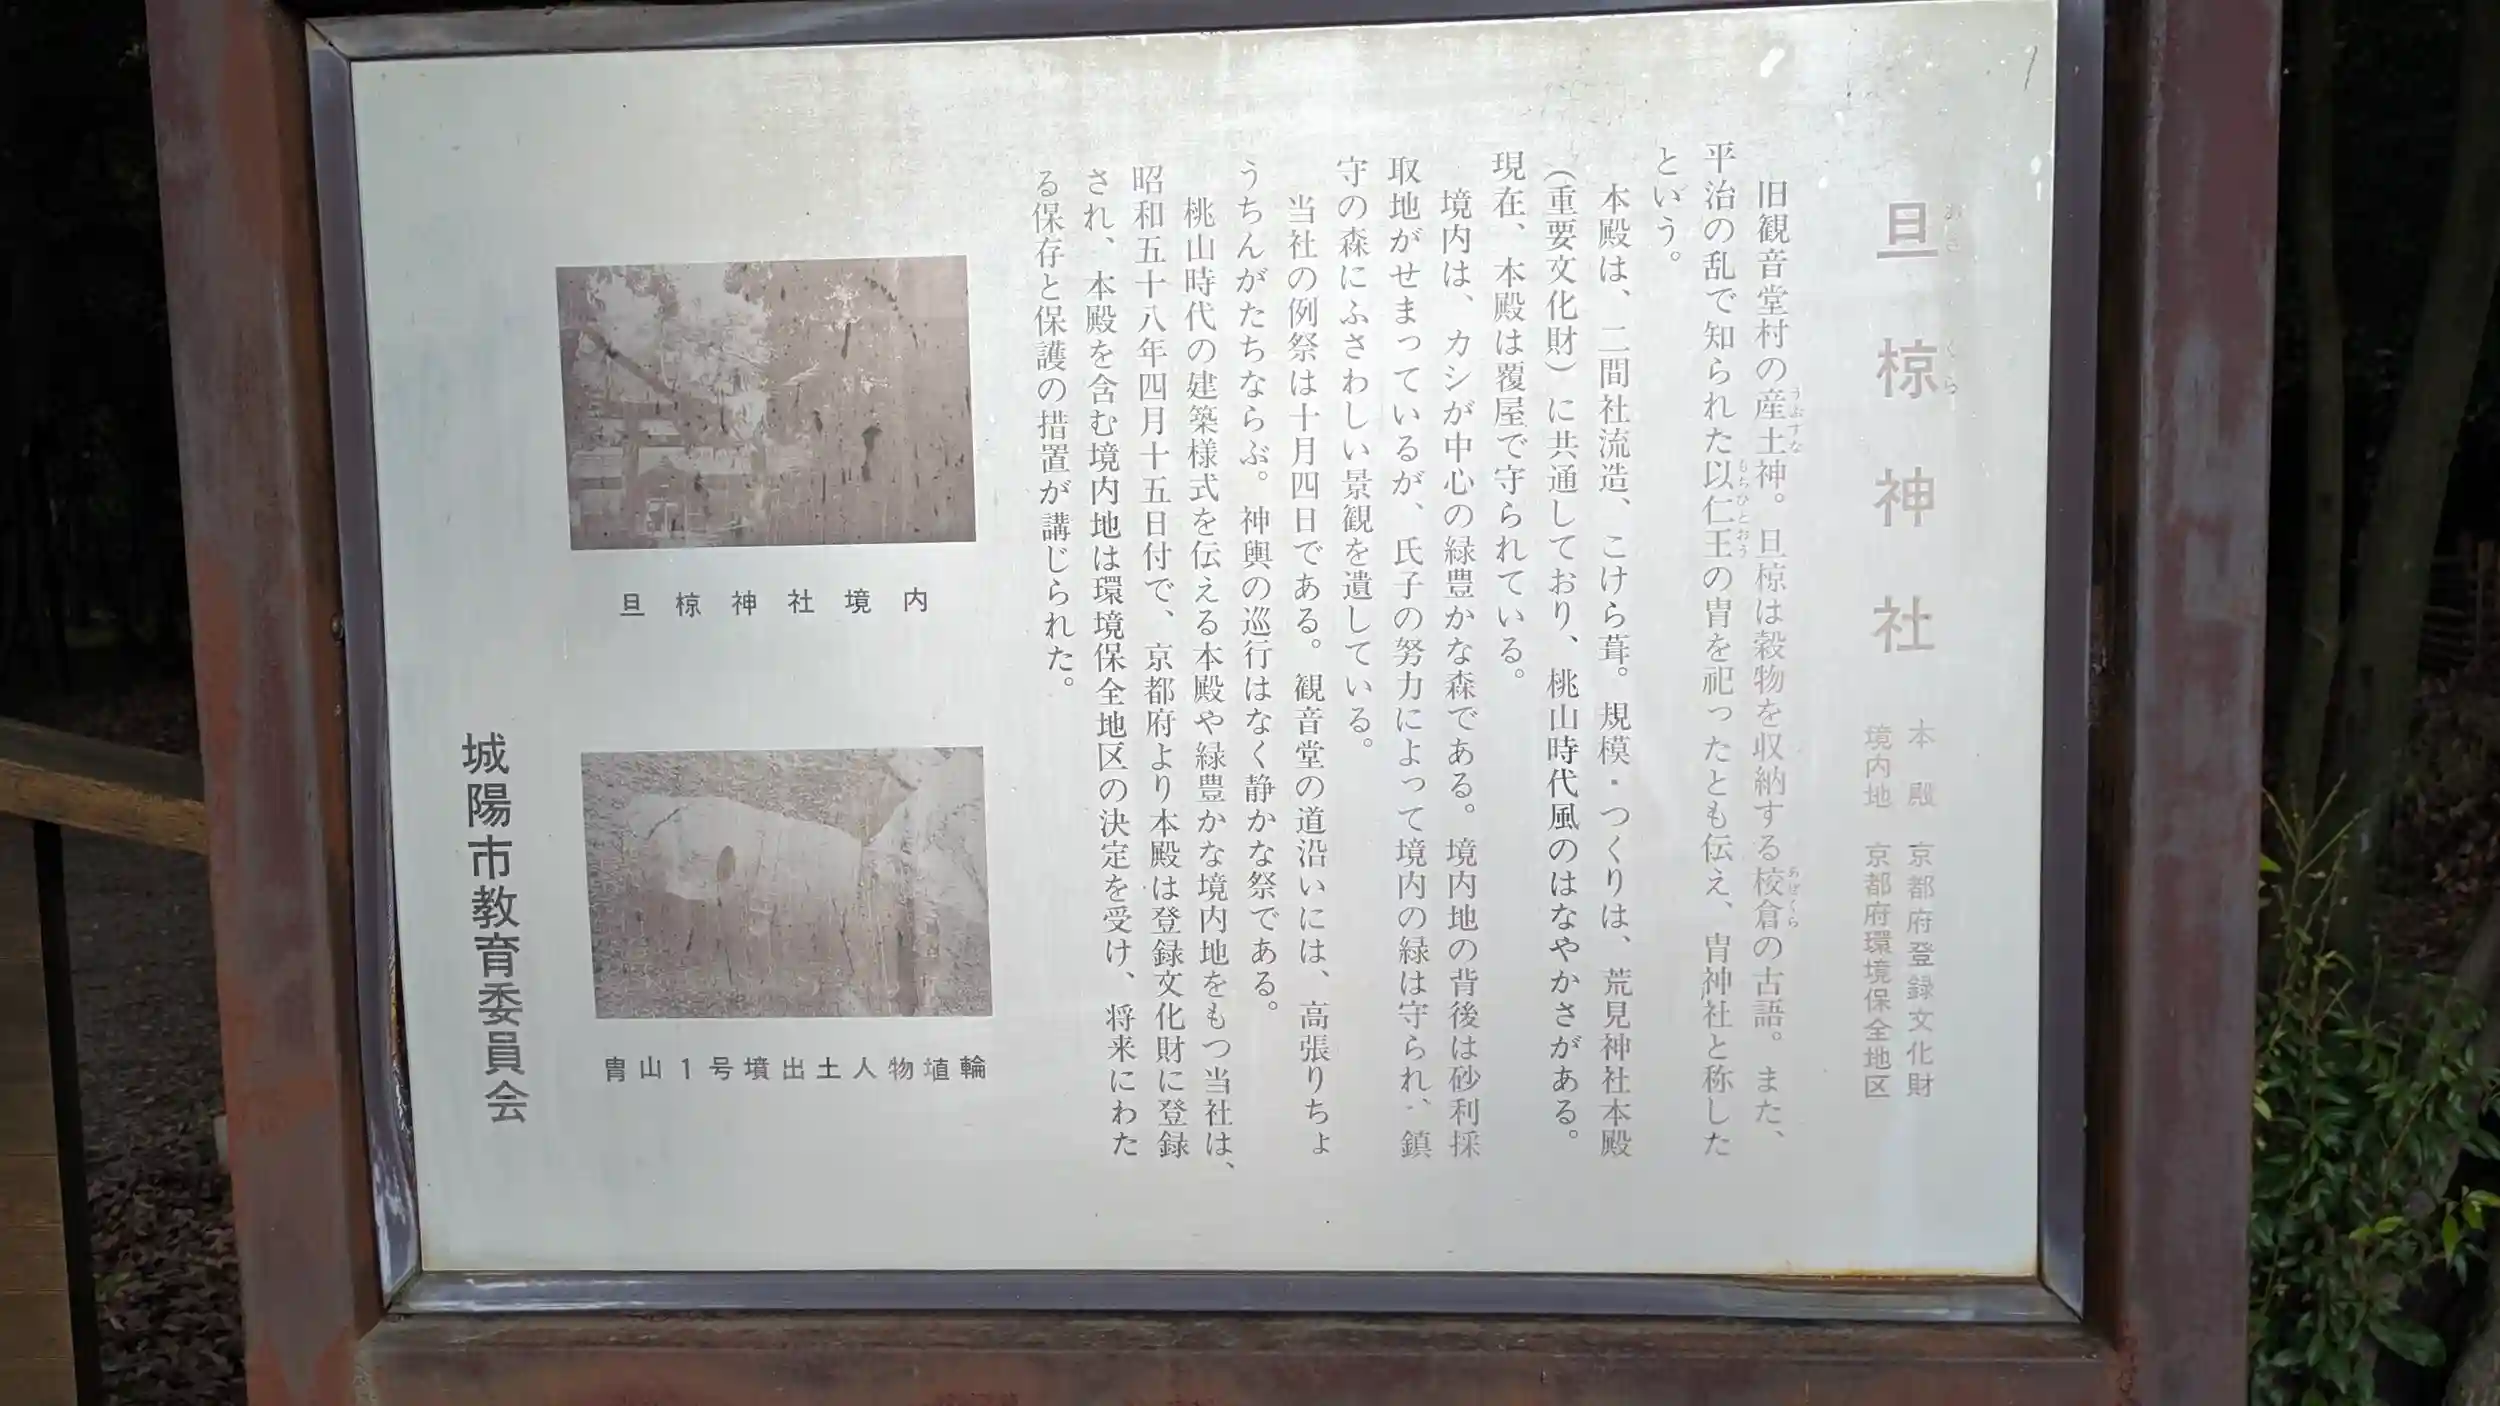 旦椋神社
本殿 京都府登録文化財
境内地 京都府環境保全地区
旧観音堂村の産土神。旦椋は穀物を収納する校倉の古語。また、
平治の乱で知られた以仁王の冑を祀ったとも伝え、冑神社と称した
という。
本殿は、二間社流造、こけら葺。規模・つくりは、荒見神社本殿
(重要文化財)に共通しており、桃山時代風のはなやかさがある。
現在、本殿は覆屋で守られている。
境内は、カシが中心の緑豊かな森である。境内地の背後は砂利採
取地がせまっているが、氏子の努力によって境内の緑は守られ、鎮
守の森にふさわしい景観を遺している。
当社の例祭は十月四日である。観音堂の道沿いには、高張りちょ
うちんがたちならぶ。神輿の巡行はなく静かな祭である。
桃山時代の建築様式を伝える本殿や緑豊かな境内地をもつ当社は、
昭和五十八年四月十五日付で、京都府より本殿は登録文化財に登録
され、本殿を含む境内地は環境保全地区の決定を受け、将来にわた
る保存と保護の措置が講じられた。
旦椋神社境内
冑山1号墳出土人物埴輪
城陽市教育委員会